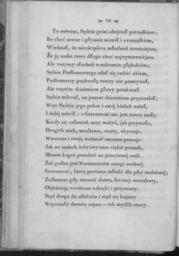 — 22 —
To mówiąc, Sędzia gości obejrzał porządkiem;
Bo choć zawsze i płynnie mówił i z rozsądkiem,
Wiedział, że niecierpliwa młodzież teraźniejsza,
Że ją nudzi rzecz długa choć najwymowniejsza.
Ale wszyscy słuchali w milczeniu głębokiém;
Sędzia Podkomorzego zdał się radzić okiem,
Podkomorzy pochwałą rzeczy nie przerywał,
Ale częstém skinieniem głowy potakiwał.
Sędzia milczał, on jeszcze skinieniem przyzwalał;
Więc Sędzia jego puhar i swój kielich nalał,
I daléj mówił: « Grzeczność nie jest rzeczą małą:
Kiedy się człowiek uczy ważyć, jak przystało,
Drugich wiek, urodzenie, cnoty, obyczaje,
Wtenczas i swoją ważność zarazem poznaje:
Jak na szalach żebyśmy nasz ciężar poznali,
Musim kogoś posadzić na przeciwnéj szali.
Zaś godna jest Waszmościów uwagi osobnéj
Grzeczność, którą powinna młodź dla płci nadobnéj;
Zwłaszcza gdy zacność domu, fortuny szczodroty,
Objaśniają wrodzone wdzięki i przymioty.
Stąd droga do affektów i stąd się kojarzy
Wspaniały domów sojusz — tak myślili starzy.